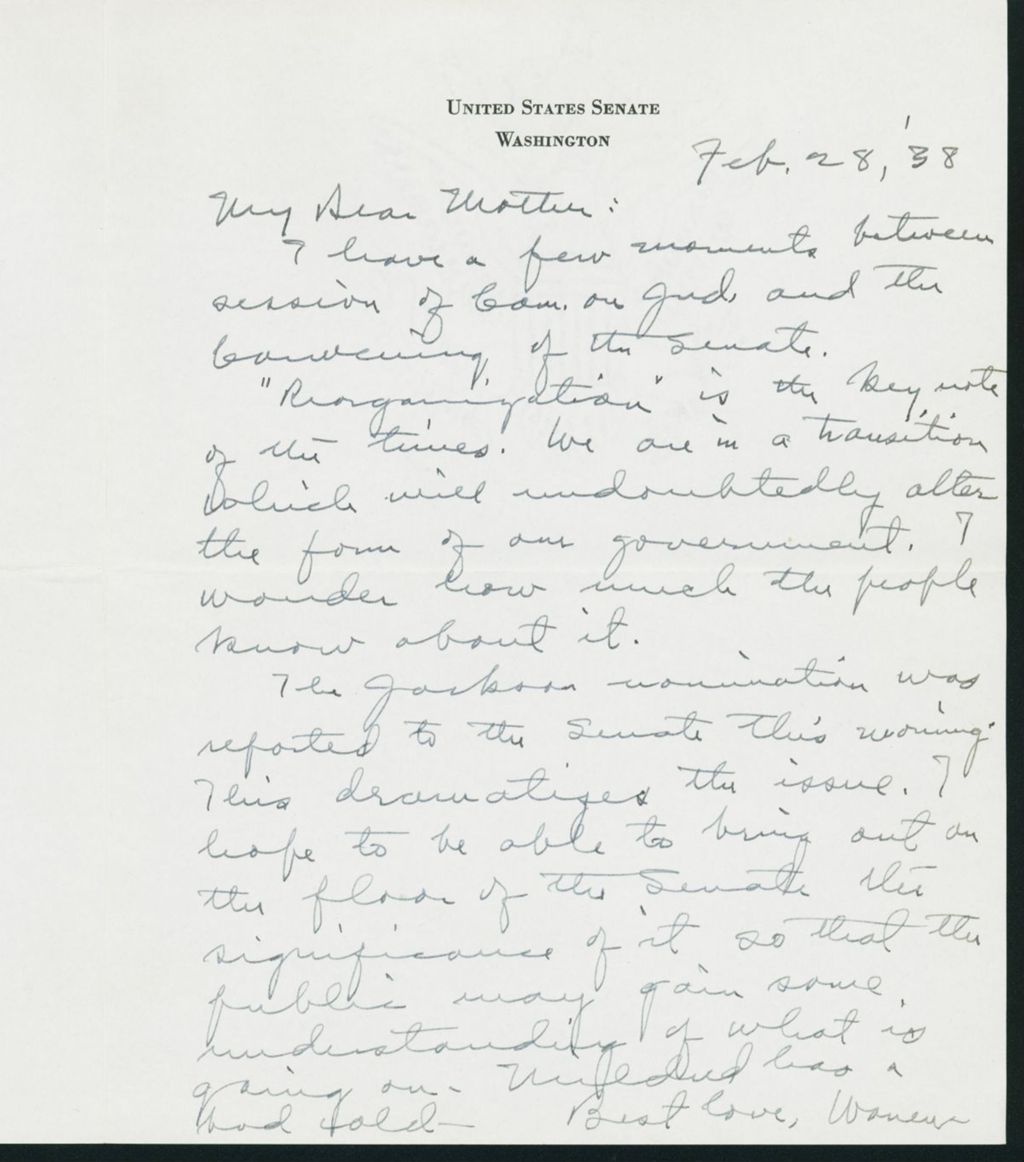 UNITED STATES SENATE
WASHINGTON
Feb. 28, '38
My Dear Mother:
I have a few moments between
session of Com. on Jud. and the
Convening of the Senate.
"Reorganization" is the key note
of the times. We are in a transition
which will undoubtedly alter
the form of our government. I
wonder how much the people
know about it.
The Jackson nomination was
reported to the Senate this morning.
This dramatizes the issue. I
hope to be able to bring out on
the floor of the Senate the
significance of it so that the
public may gain some
understanding of what is
going on - Mildred has a
bad cold - Best love, Warren